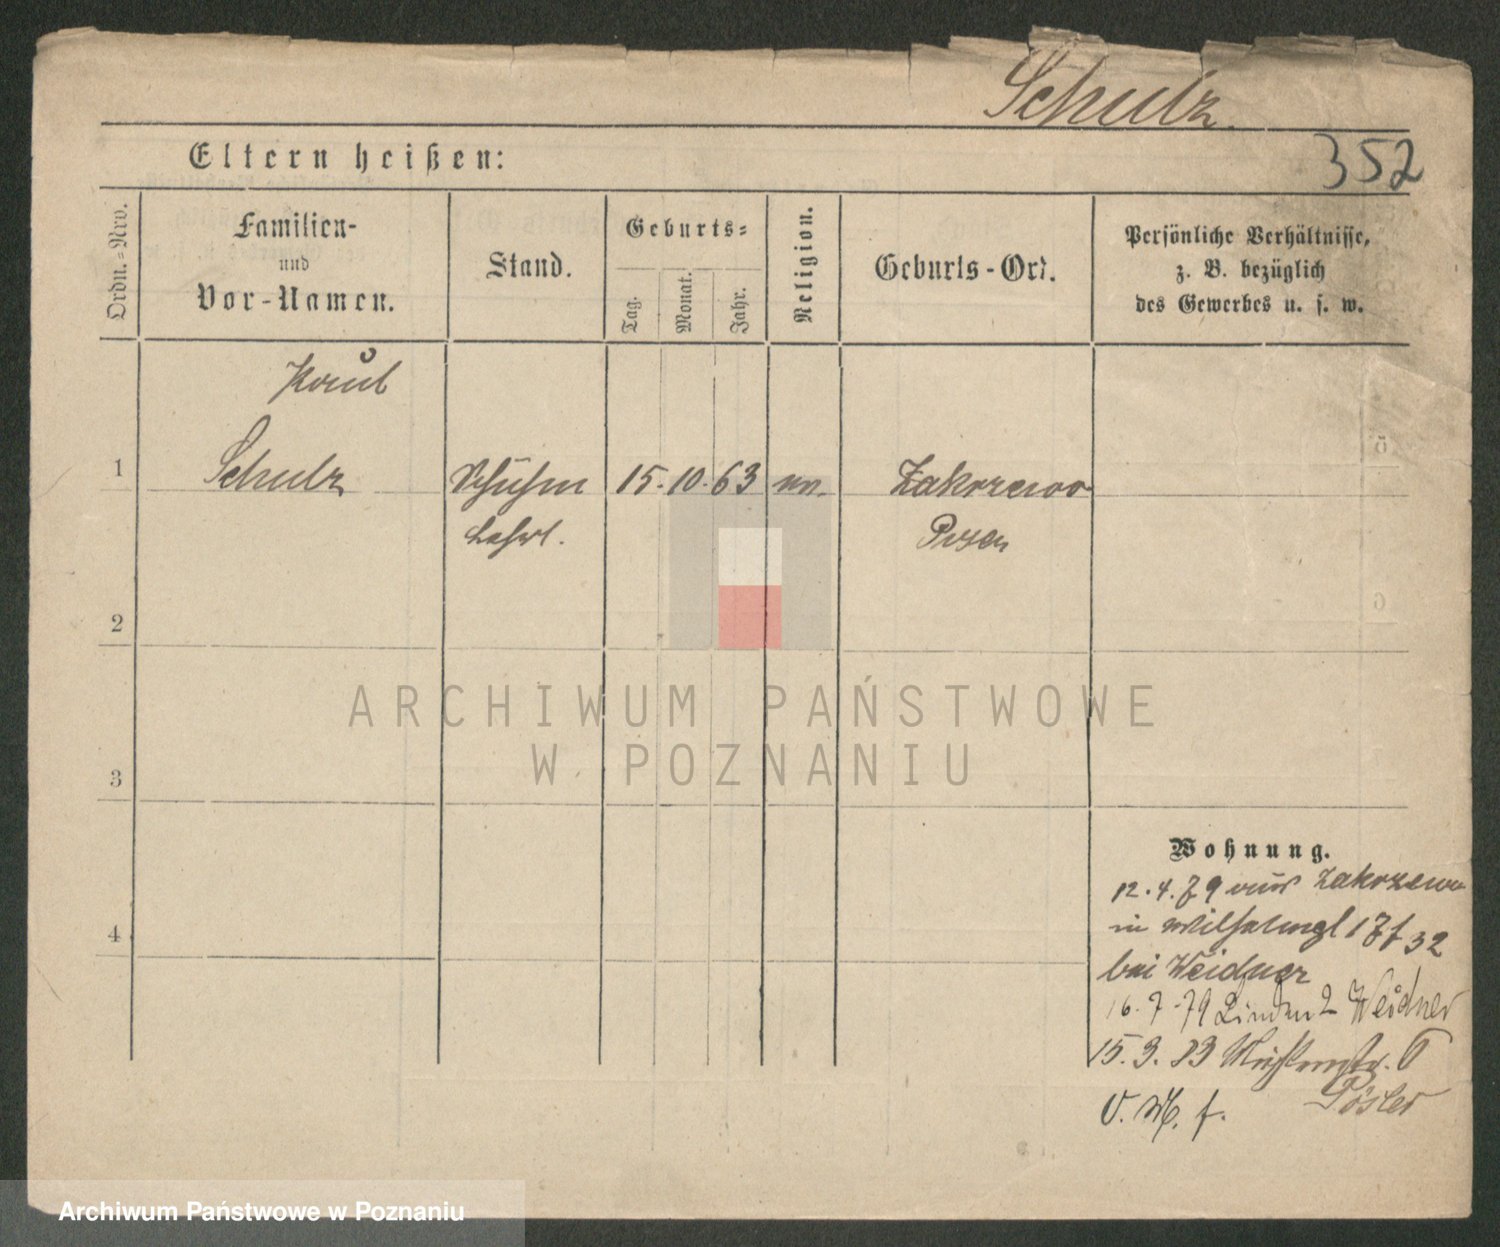 Schulz.
Eltern heißen:
352
Ordn.-Nro.
Familien-
und
Vor-Namen.
Stand.
Geburts-
Tag.
Monat.
Jahr.
Religion.
Geburts-Ort.
Persönliche Verhältnisse,
z. B. bezüglich
des Gewerbes u. s. w.
Paul
1
Schulz
15. 10. 63
Zakrzewo
Lehrl.
Posen
2
ARCHIWUM PAŃSTWOWE
W POZNANIU
3
Wohnung.
12. 4. 79 aus Zakrzewo
in
32
4
bei Weidner
16. 7. 79 Linden 2 Weidner
15. 3. 83
Pösler
Archiwum Państwowe w Poznaniu